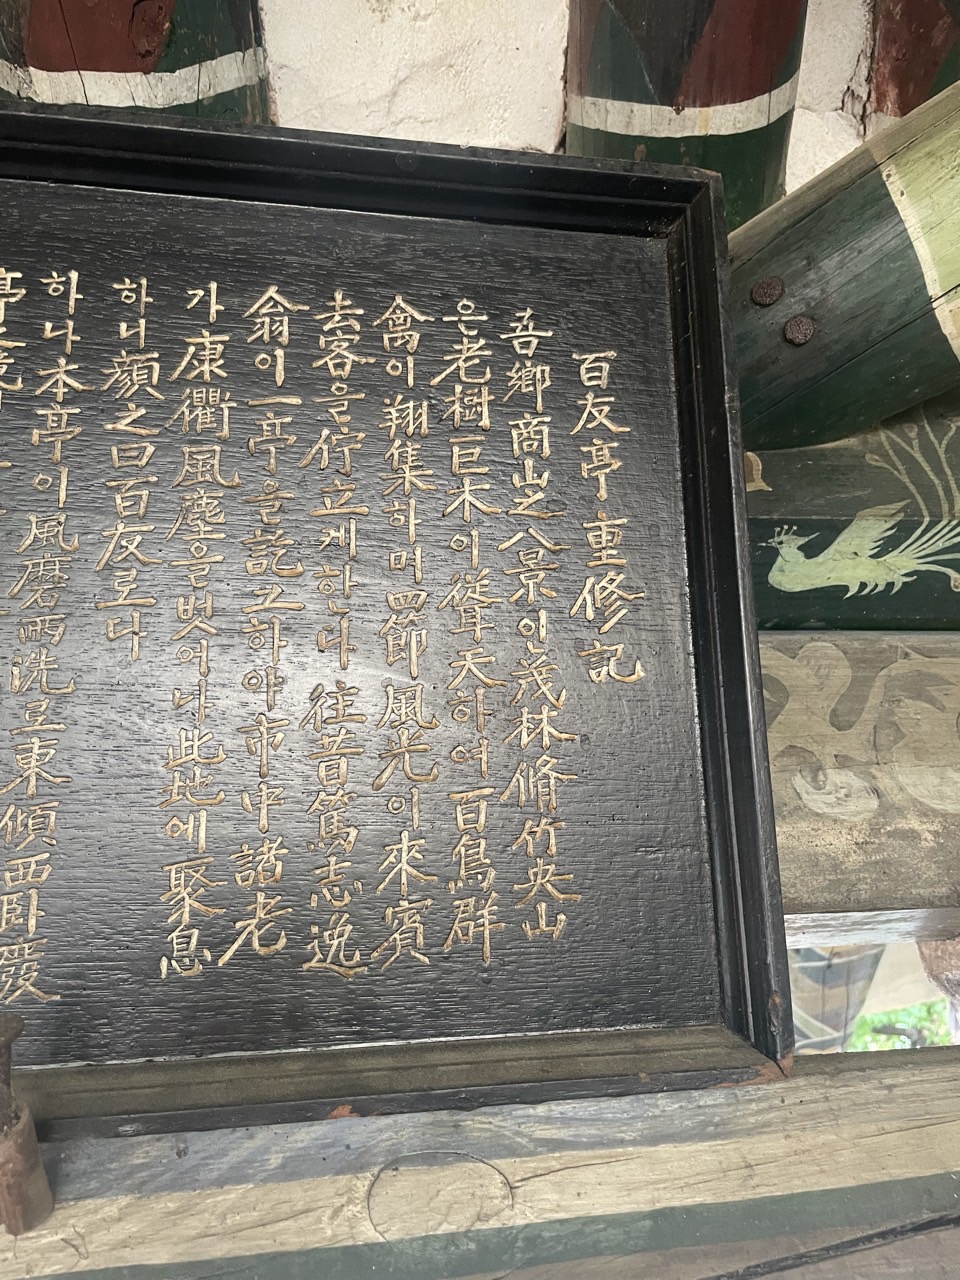 百友亭重修記
吾鄕商山之八景인茂林脩竹央山
은老樹巨木이從聳天하여百鳥群
禽이翔集하며四節風光이來賓
去客을佇立케한다往昔篤志逸
翁이一亭을訖그하야市中諸老
가康衢風塵을벗어나此地에聚息
하니顔之曰百友로다
하나本亭이風磨雨洗로東傾西臥發